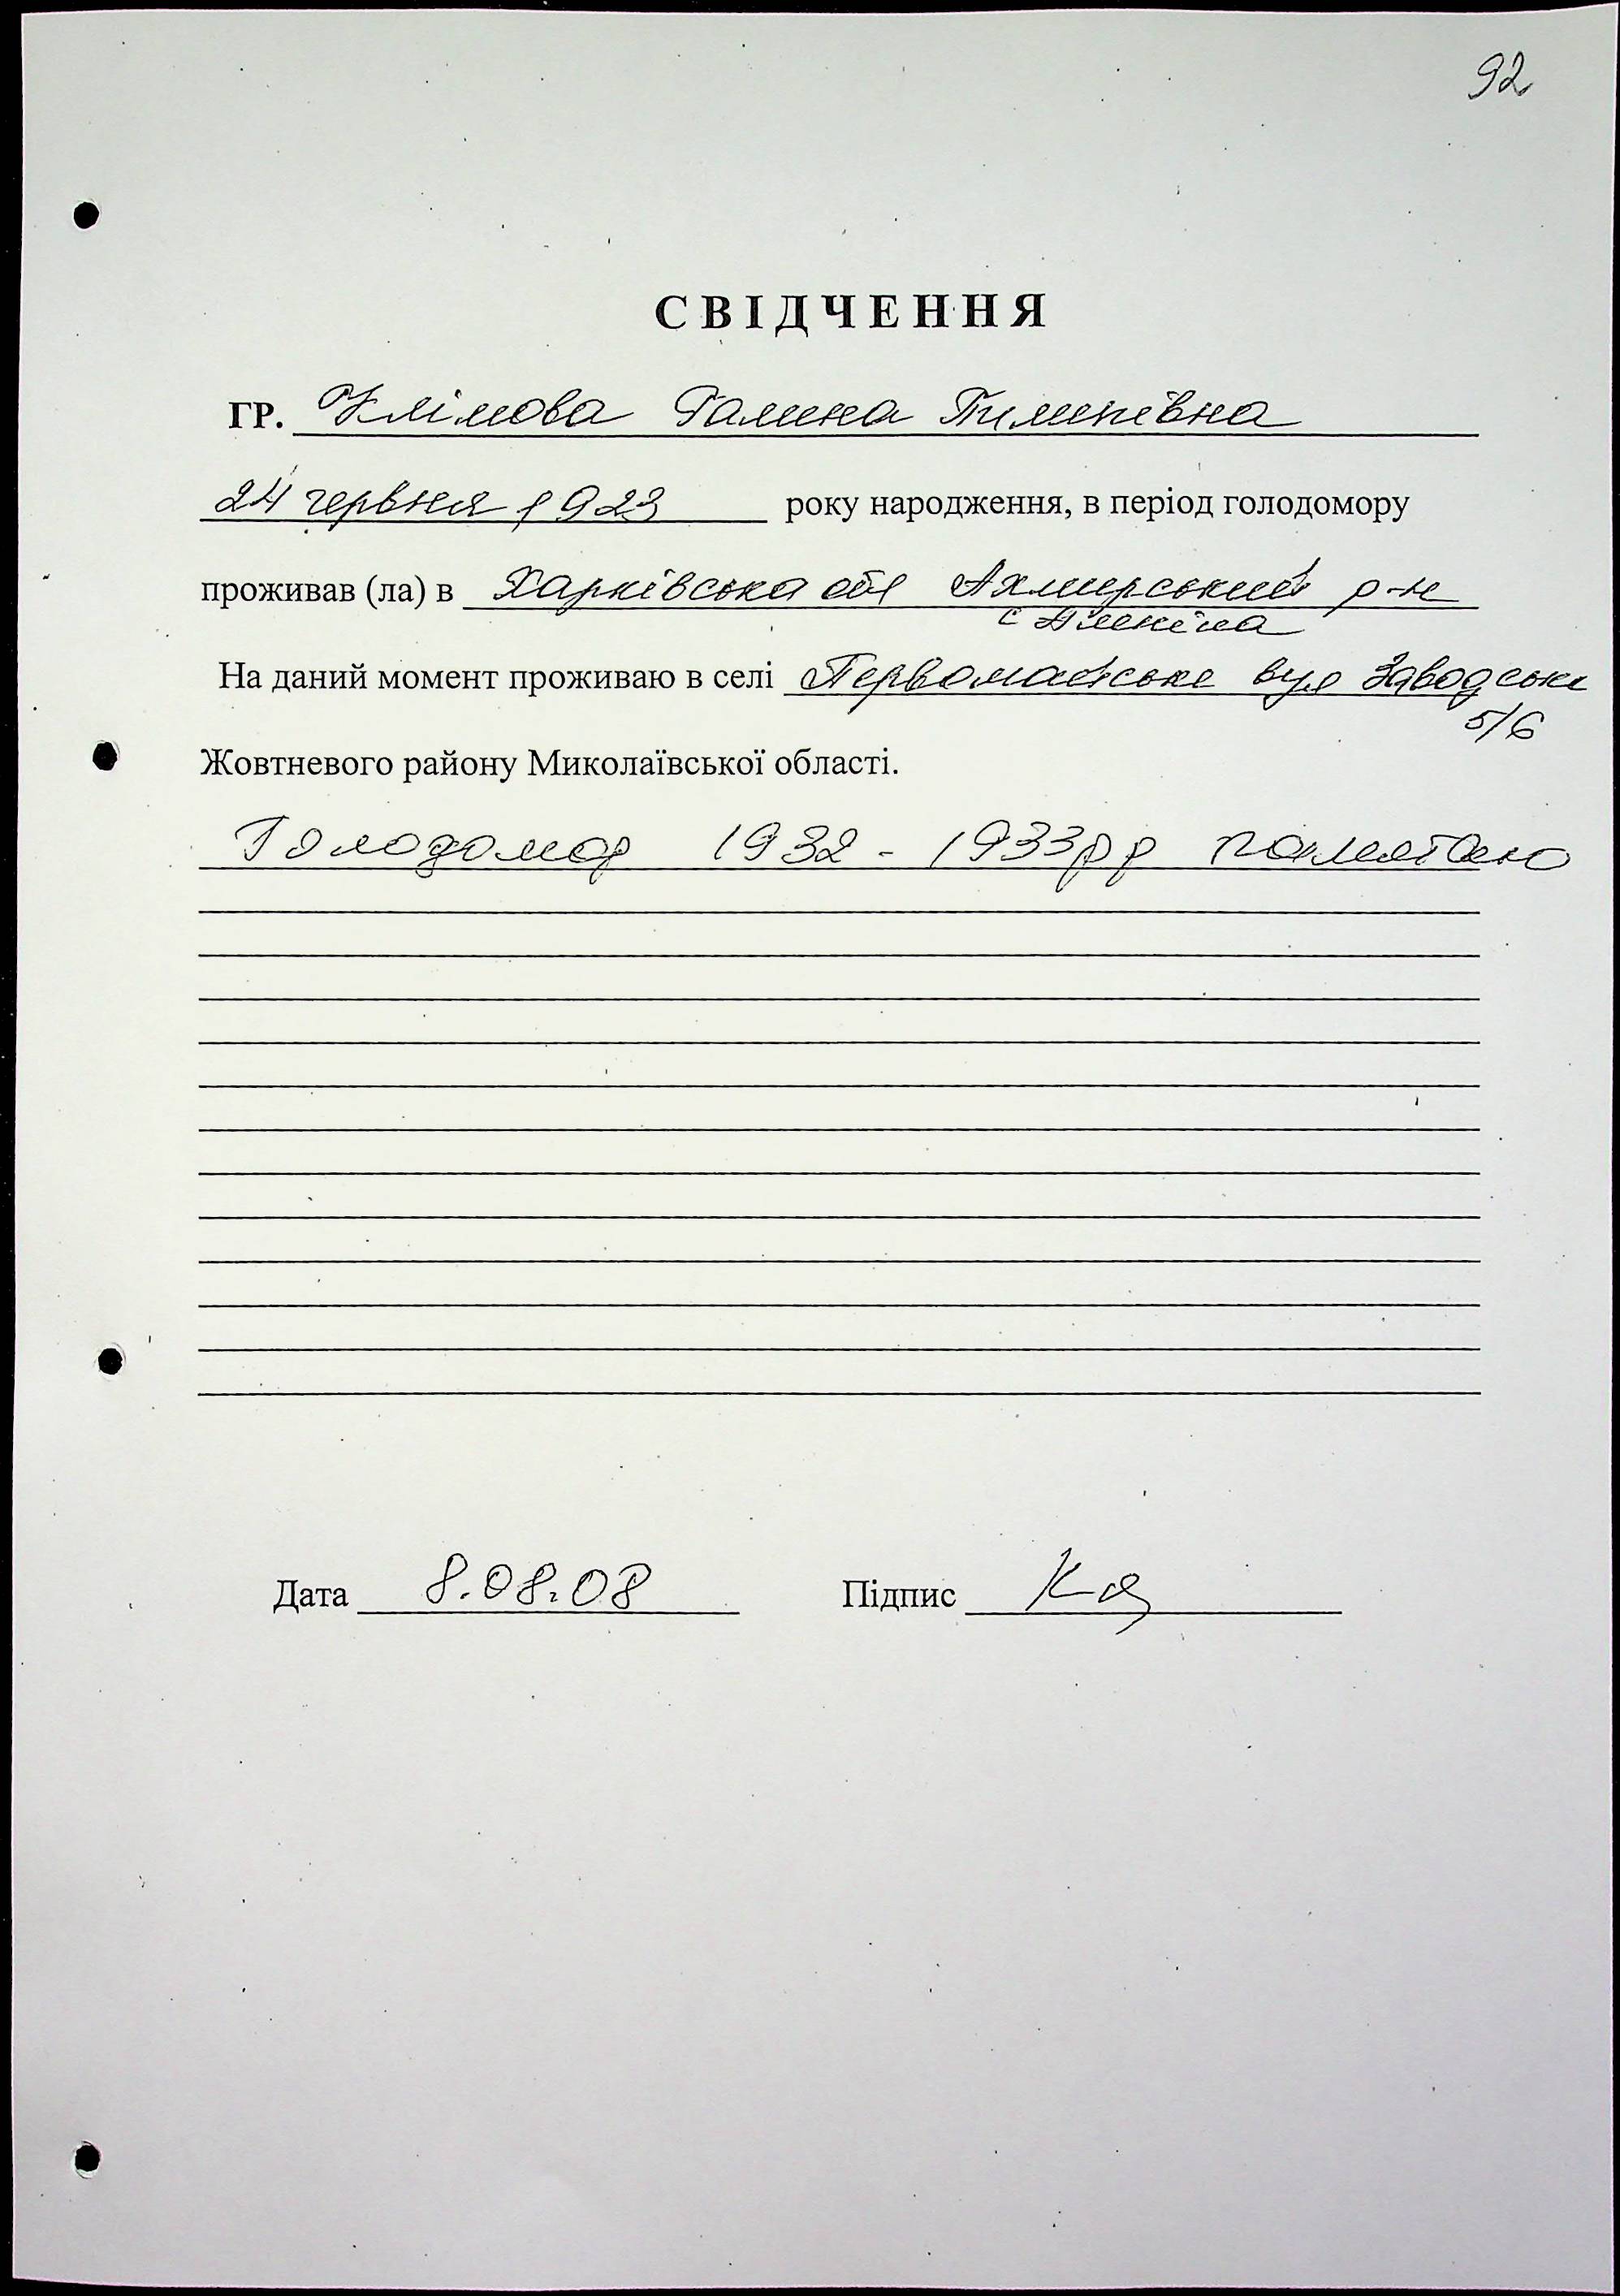 92
СВІДЧЕННЯ
ГР. Клімова Галина Пилипівна
24 червня 1923 року народження, в період голодомору
проживав (ла) в Харківська обл Ахтирський р-н
с
На даний момент проживаю в селі Первомайське вул Заводська
5/6
Жовтневого району Миколаївської області.
Голодомор 1932 - 1933 рр памятаю
Дата 8.08.08 Підпис